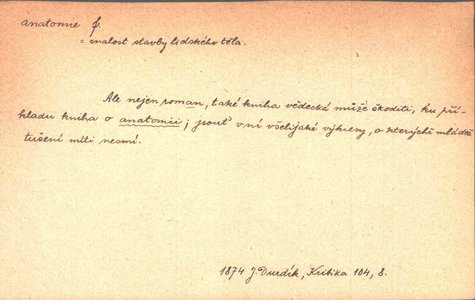 anatomie f.
= znalost stavby lidského těla.
Ale nejen roman, také kniha vědecká může škoditi, ku pří-
kladu kniha o anatomii; jsouť v ní všelijaké výkresy, o kterýchž mládež
tušení míti nesmí.
1874 J. Durdík, Kritika 104, 8.